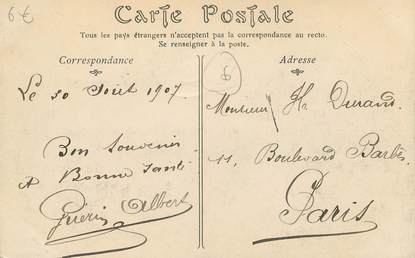 6€
Carte Postale
Tous les pays étrangers n'acceptent pas la correspondance au recto.
Se renseigner à la poste.
Correspondance
Adresse
6
Le 30 Août 1907
Bon Souvenir
et Bonne Santé
Guérin Albert
Monsieur H. Durand
11, Boulevard Barbès
Paris